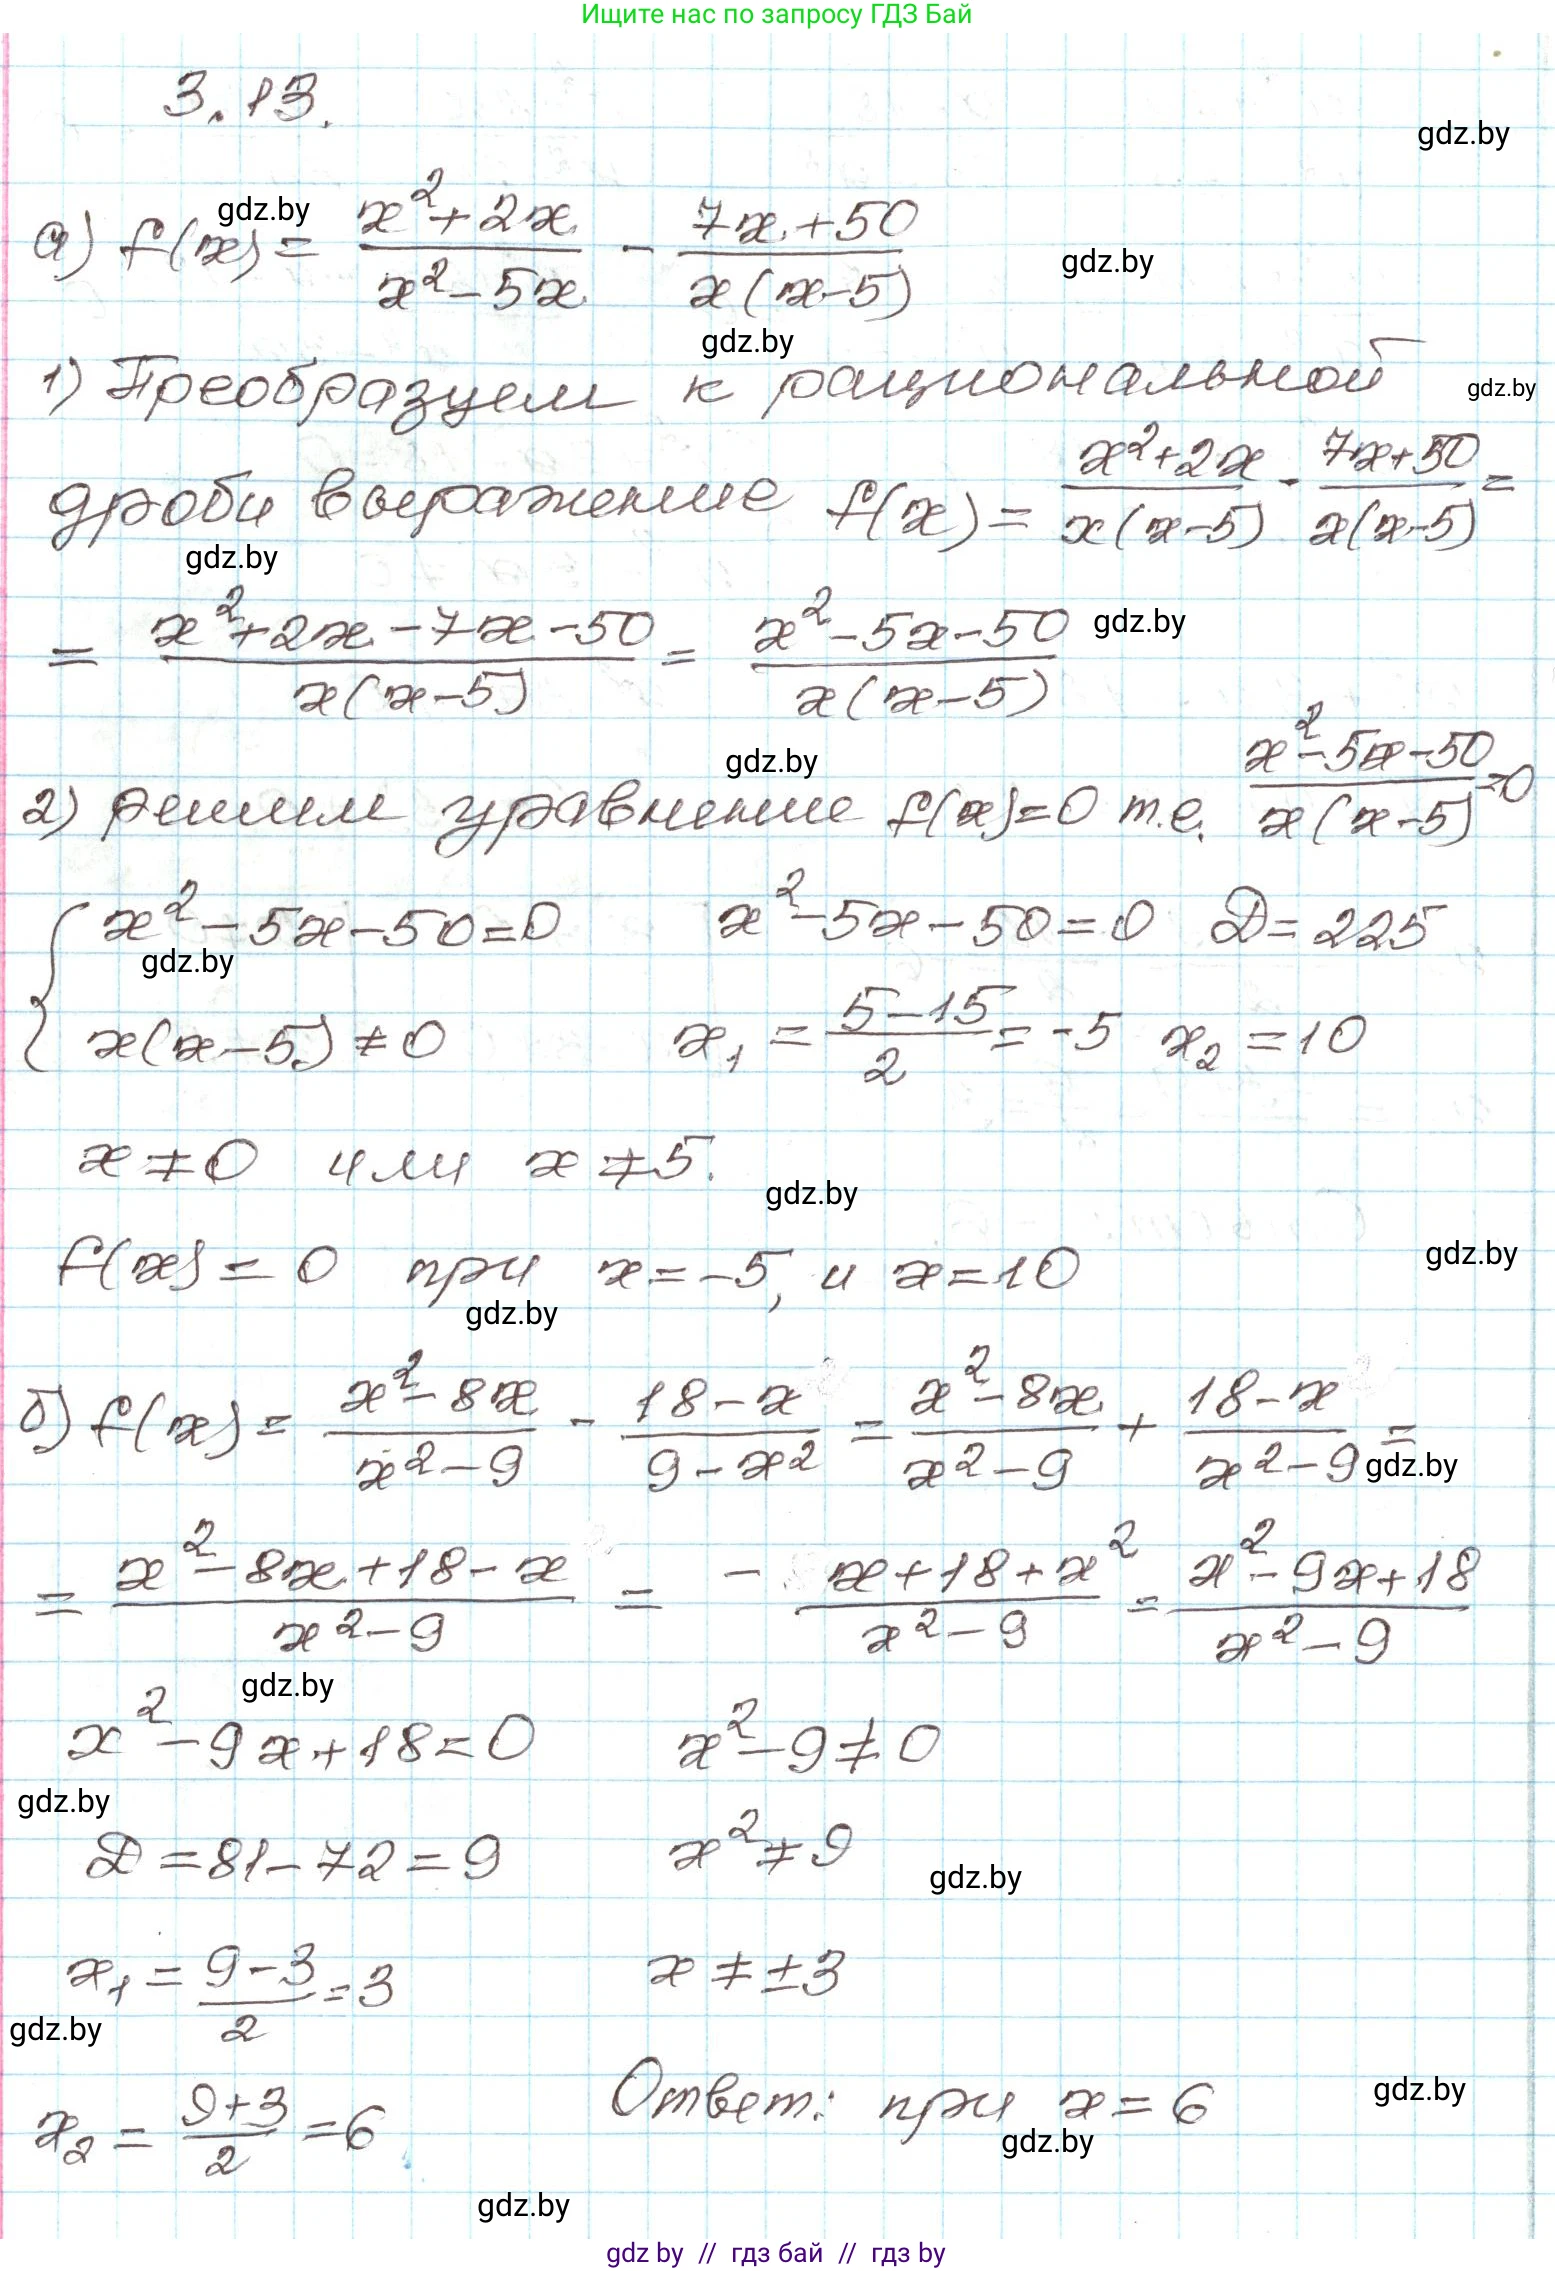 Ищите нас по запросу ГДЗ Бай
3.13.
gdz.by
gdz.by
а) f(x) = (x² + 2x)/(x² - 5x) - (7x + 50)/(x(x-5))
gdz.by
gdz.by
1) Преобразуем к рациональной
gdz.by
дроби выражение f(x) = (x²+2x)/(x(x-5)) - (7x+50)/(x(x-5)) =
gdz.by
= (x²+2x-7x-50)/(x(x-5)) = (x²-5x-50)/(x(x-5))
gdz.by
gdz.by
2) решим уравнение f(x)=0 т.е. (x²-5x-50)/(x(x-5)) =0
{ x²-5x-50=0 x²-5x-50=0 D=225
gdz.by
x(x-5) ≠ 0 x₁ = (5-15)/2 = -5 x₂ = 10
x ≠ 0 или x ≠ 5.
gdz.by
gdz.by
f(x) = 0 при x = -5, и x = 10
gdz.by
б) f(x) = (x²-8x)/(x²-9) - (18-x)/(9-x²) = (x²-8x)/(x²-9) + (18-x)/(x²-9) =
gdz.by
= (x²-8x+18-x)/(x²-9) = - (x+18+x²)/(x²-9) = (x²-9x+18)/(x²-9)
gdz.by
x²-9x+18=0 x²-9≠0
gdz.by
D = 81-72 = 9 x² ≠ 9
gdz.by
x₁ = (9-3)/2 = 3 x ≠ ±3
gdz.by
gdz.by
x₂ = (9+3)/2 = 6 Ответ: при x = 6
gdz.by
gdz.by
gdz by // гдз бай // гдз by